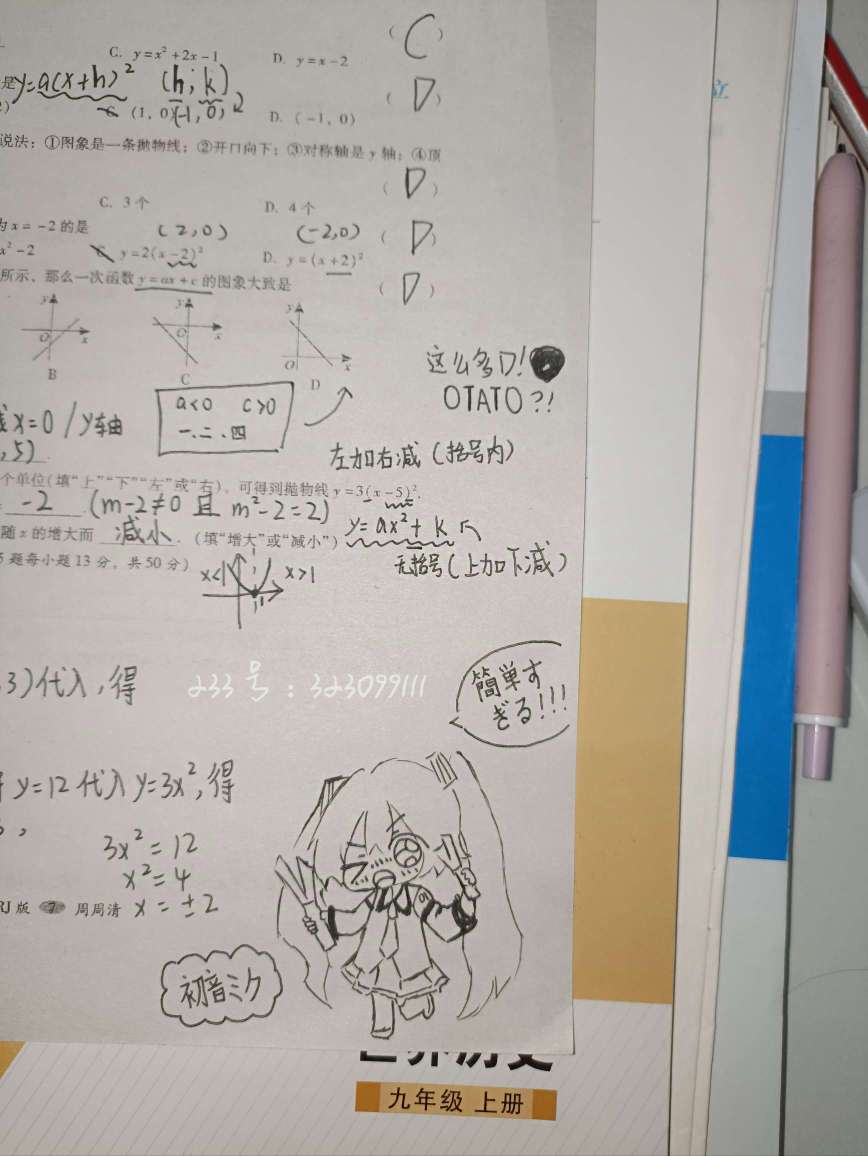 ( C )
C. y=x²+2x-1 D. y=x-2
是 y=a(x+h)² (h, k)
( D )
C. (1, 0) (-1, 0) D. (-1, 0)
说法：①图象是一条抛物线；②开口向下；③对称轴是 y 轴；④顶
( D )
C. 3个 D. 4个
为 x=-2 的是 (2,0) (-2,0) ( D )
x²-2 C. y=2(x-2)² D. y=(x+2)²
所示，那么一次函数 y=ax+c 的图象大致是 ( D )
y y y
O x O x O x
B C D
这么多D!
OTATO?!
a<0 c>0
一、二、四
x=0 / y轴
,5)
左加右减（括号内）
个单位(填“上”“下”“左”或“右”)，可得到抛物线 y=3(x-5)².
-2 (m-2≠0 且 m²-2=2)
随 x 的增大而 减小 .（填“增大”或“减小”） y=ax²+k
无括号（上加下减）
题每小题 13 分，共 50 分）
x<1 x>1
3)代入，得
233号：323099111
簡単す
ぎる!!!
y=12 代入 y=3x²,得
3x²=12
x²=4
RJ版 7 周周清 x=±2
初音ミク
世界历史
九年级 上册